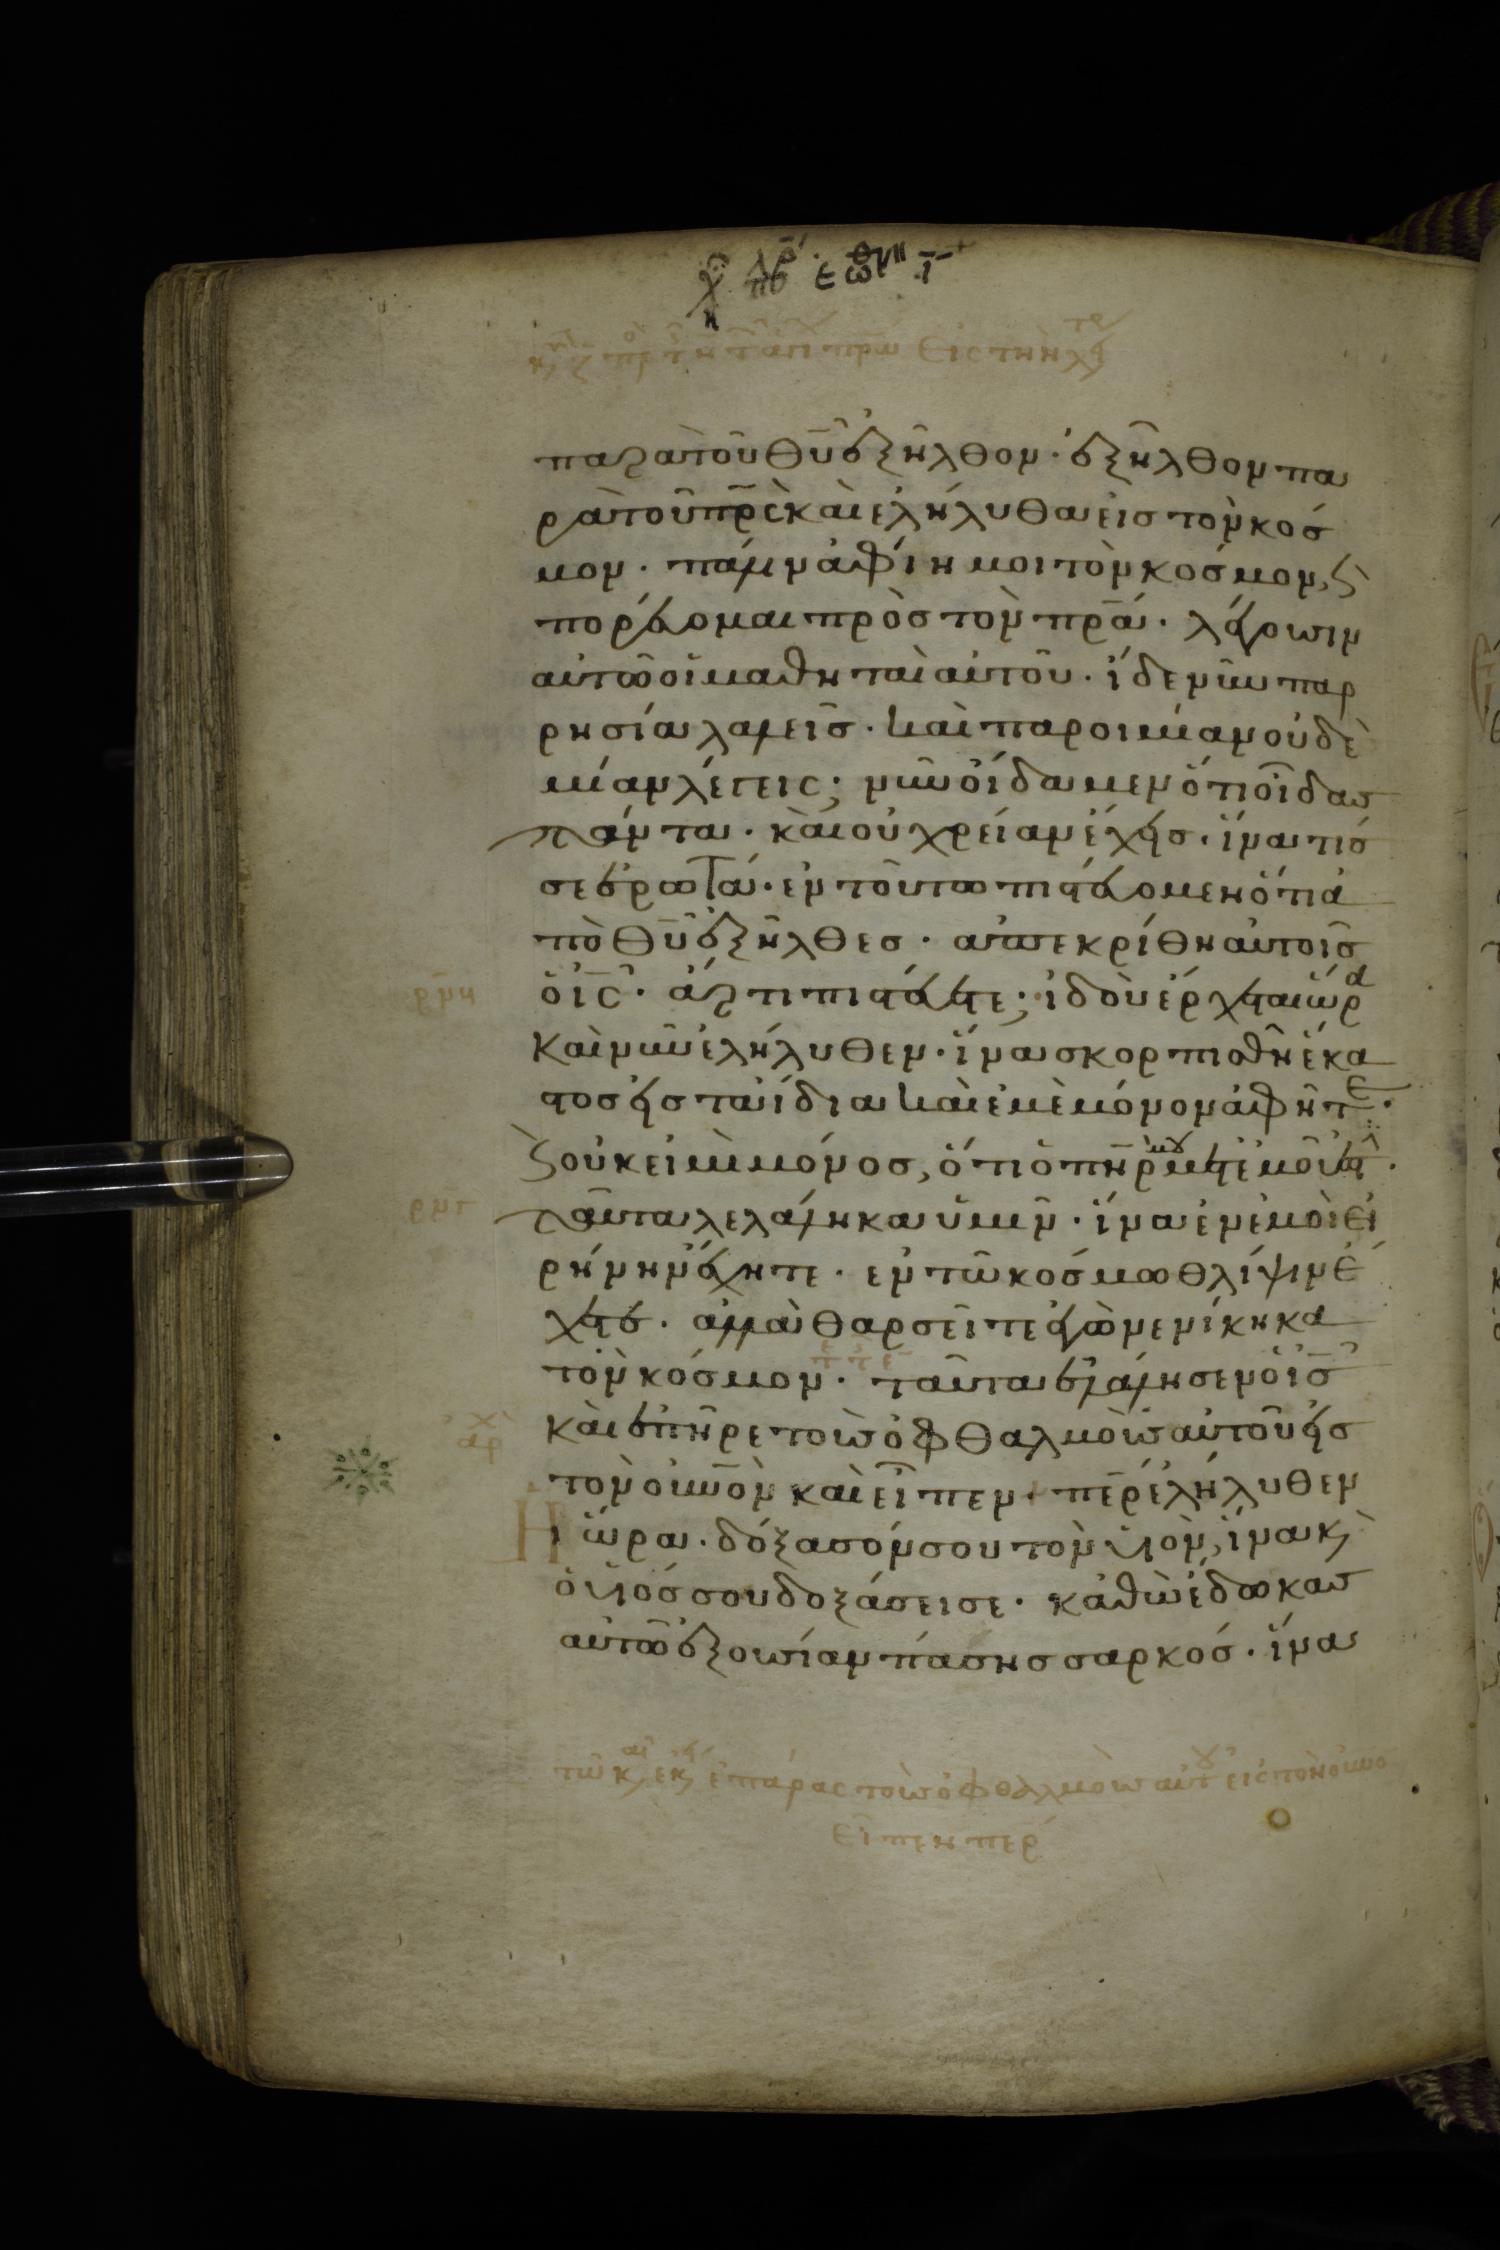 παρα τοῦ θυ ἐξῆλθον· ἐξῆλθον πα
ρὰ τοῦ πρς καὶ ἐλήλυθα εἰς τὸν κόσ
μον· πάλιν ἀφίημι τὸν κόσμον, καὶ
πορεύομαι πρὸς τὸν πρα· λέγουσιν
αὐτῶ οἱ μαθηταὶ αὐτοῦ· ἴδε νῦν παρ
ρησία λαλεῖς· καὶ παροιμίαν οὐδε
μίαν λέγεις· νῦν οἴδαμεν ὅτι οἶδας
πάντα· καὶ οὐ χρείαν ἔχεις· ἵνα τίς
σε ἐρωτᾶ· ἐν τούτω πιστεύομεν ὅτι ἀ
πὸ θυ ἐξῆλθες· ἀπεκρίθη αὐτοῖς
ὁ ις· ἄρτι πιστεύετε· ἰδοὺ ἔρχεται ὥρα
ρμη
καὶ νῦν ἐλήλυθεν· ἵνα σκορπισθῆ ἕκα
στος εἰς τὰ ἴδια καὶ ἐμὲ μόνον ἀφῆτε·
καὶ οὐκ εἰμὶ μόνος, ὅτι ὁ πηρ μου μετ ἐμοῦ ἐστ·
ταῦτα λελάληκα ὑμῖν· ἵνα ἐν ἐμοὶ εἰ
ρήνην ἔχητε· ἐν τῶ κόσμω θλίψιν ἔ
χετε· ἀλλὰ θαρσεῖτε ἐγὼ νενίκηκα
τὸν κόσμον· ταῦτα ἐλάλησεν ὁ ις
καὶ ἐπῆρε τοὺς ὀφθαλμοὺς αὐτοῦ εἰς
αρχ
τὸν οὐνον καὶ εἶπεν· περ ἐλήλυθεν
Ἡ ὥρα· δόξασόν σου τὸν υἱὸν, ἵνα κ
ὁ υἱός σου δοξάσει σε· καθὼς ἔδωκας
αὐτῶ ἐξουσίαν πάσης σαρκός· ἵνα
τῶ κ ἐκ ἐπάρας τοὺς ὀφθαλμοὺς αὐτου εἰς τὸν οὐνο
εἶπεν περ